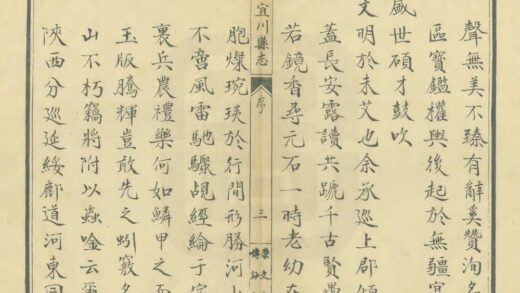 聲無美不臻有辭奚贊洵多
區寶鑑權輿後起於無疆寔
盛世碩才鼓吹
文明於未艾也余承巡上郡傾
蓋長安露讀共蹠千古賢愚
若鏡香尋元石一時老幼在
宜川縣志
序
三
胞燦琬琰於行間形勝河山
不啻風雷馳驟覘經綸于字
裏兵農禮樂何如鱗甲之而
玉版騰輝豈敢先之蚓竅名
山不朽竊將附以蟲唫云爾
陝西分巡延綏鄜道河東同